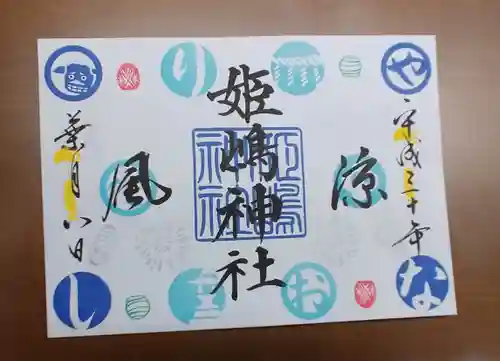 平成三十年
涼
姫嶋神社
風
葉月八日
や
り
な
お
し
姫嶋神社